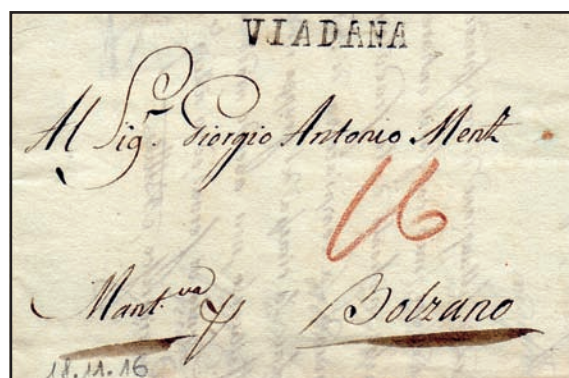 VIADANA
Al Sig.r Giorgio Antonio Mentz
16
Mant.va Bolzano
18.11.16